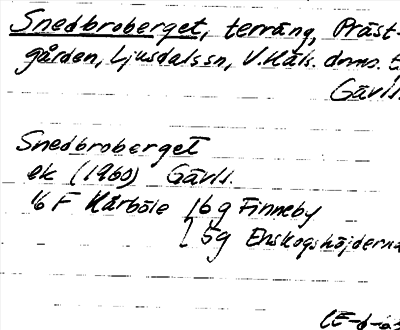 Snedbroberget, terräng, Präst-
gården, Ljusdals sn, V. Häls. doms.
Gävll.
Snedbroberget
ek (1960) Gävll.
16 F Kårböle 6 g Finneby
5 g Enskogshöjderna